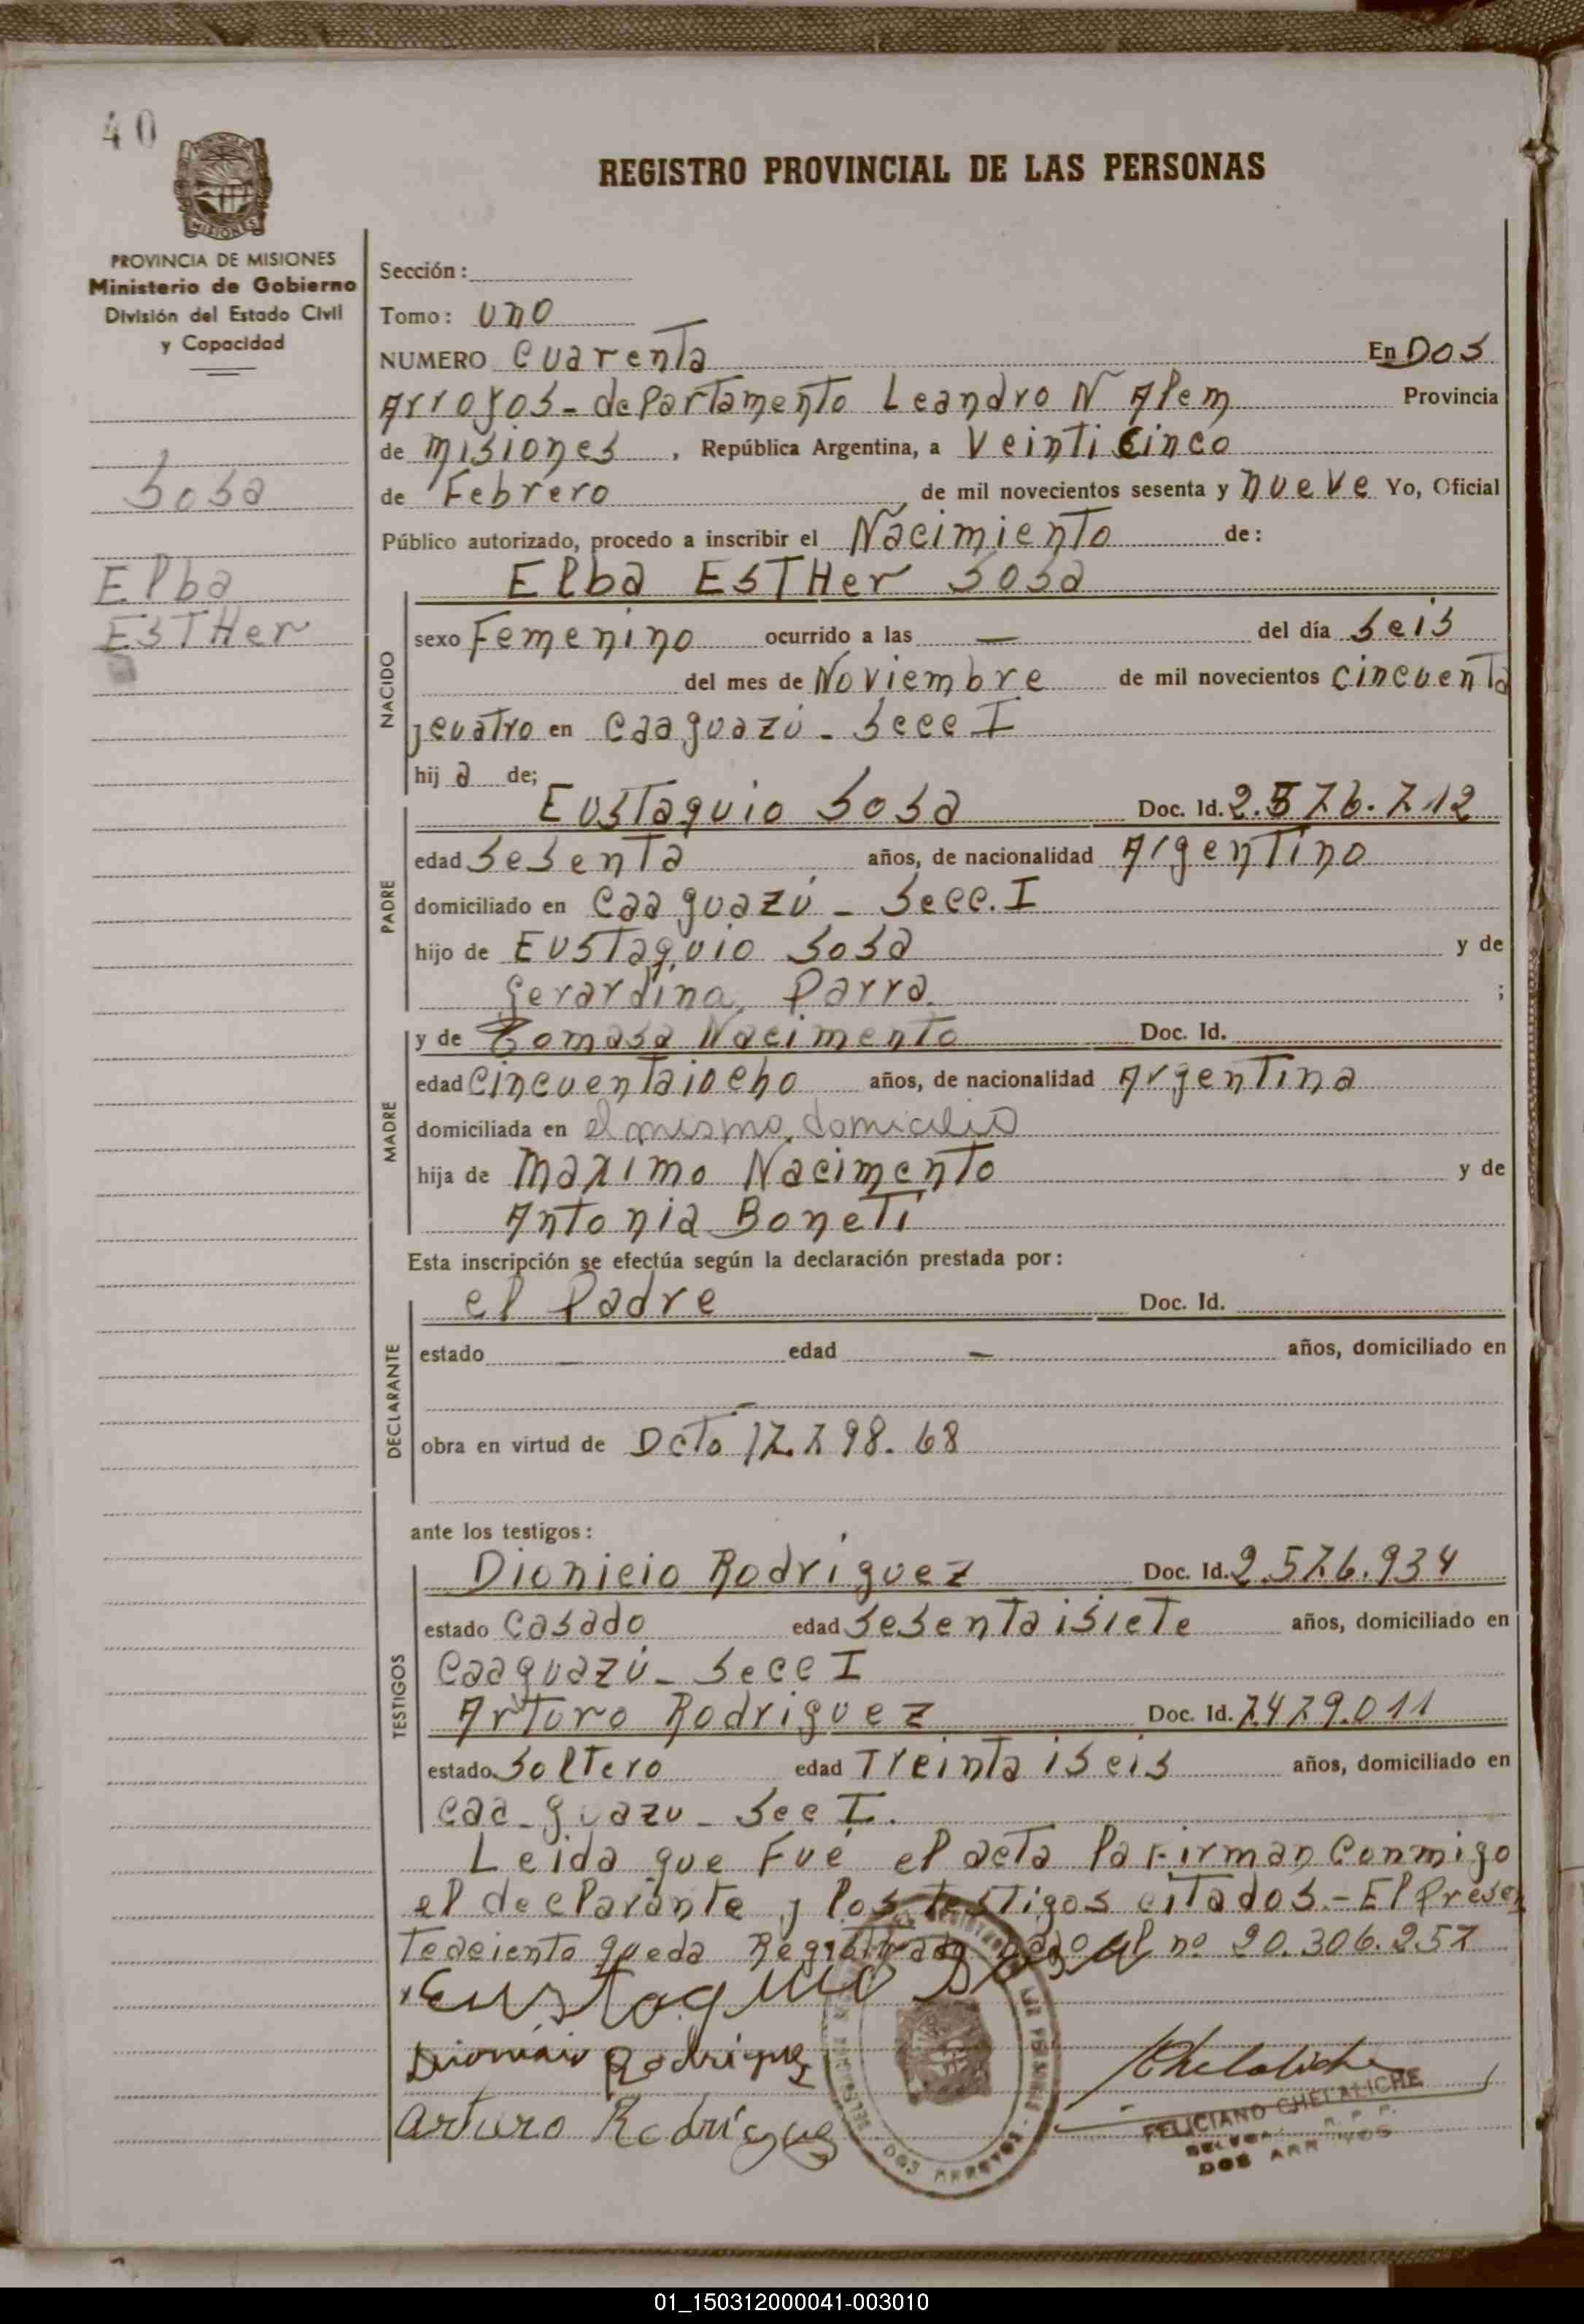 40
MISIONES
PROVINCIA DE MISIONES
Ministerio de Gobierno
División del Estado Civil
y Capacidad
Sosa
Elba
ESTHer
REGISTRO PROVINCIAL DE LAS PERSONAS
Sección:
Tomo: uno
NUMERO Cuarenta En Dos
Arroyos - departamento Leandro N Alem Provincia
de misiones , República Argentina, a Veinticinco
de Febrero de mil novecientos sesenta y nueve Yo, Oficial
Público autorizado, procedo a inscribir el Nacimiento de:
Elba ESTHer Sosa
NACIDO
sexo Femenino ocurrido a las — del día seis
del mes de Noviembre de mil novecientos cincuenta
y cuatro en Caaguazú - Secc I
hij a de;
PADRE
Eustaquio Sosa Doc. Id. 2.576.712
edad Sesenta años, de nacionalidad Argentino
domiciliado en Caaguazú - Secc. I
hijo de Eustaquio Sosa y de
Gerardina Parra ;
MADRE
y de Tomasa Nacimento Doc. Id.
edad Cincuentaiocho años, de nacionalidad Argentina
domiciliada en el mismo domicilio
hija de Maximo Nacimento y de
Antonia Boneti
Esta inscripción se efectúa según la declaración prestada por:
DECLARANTE
el Padre Doc. Id.
estado — edad — años, domiciliado en
—
obra en virtud de Dcto 17.798.68
ante los testigos:
TESTIGOS
Dionicio Rodríguez Doc. Id. 2.576.934
estado Casado edad Sesentaisiete años, domiciliado en
Caaguazú - Secc I
Arturo Rodriguez Doc. Id. 7.479.011
estado Soltero edad Treintaiseis años, domiciliado en
Caa-guazu - Sec I.
Leida que Fué el acta la Firman Conmigo
el declarante y los testigos citados.- El Presen
te aciento queda Registrado bajo el nº 20.306.257
Eustaquio Sosa
Dionicio Rodriguez
Arturo Rodríguez
Chelaliche
FELICIANO CHELALICHE
DOS ARROYOS
DOS ARROYOS
01_150312000041-003010